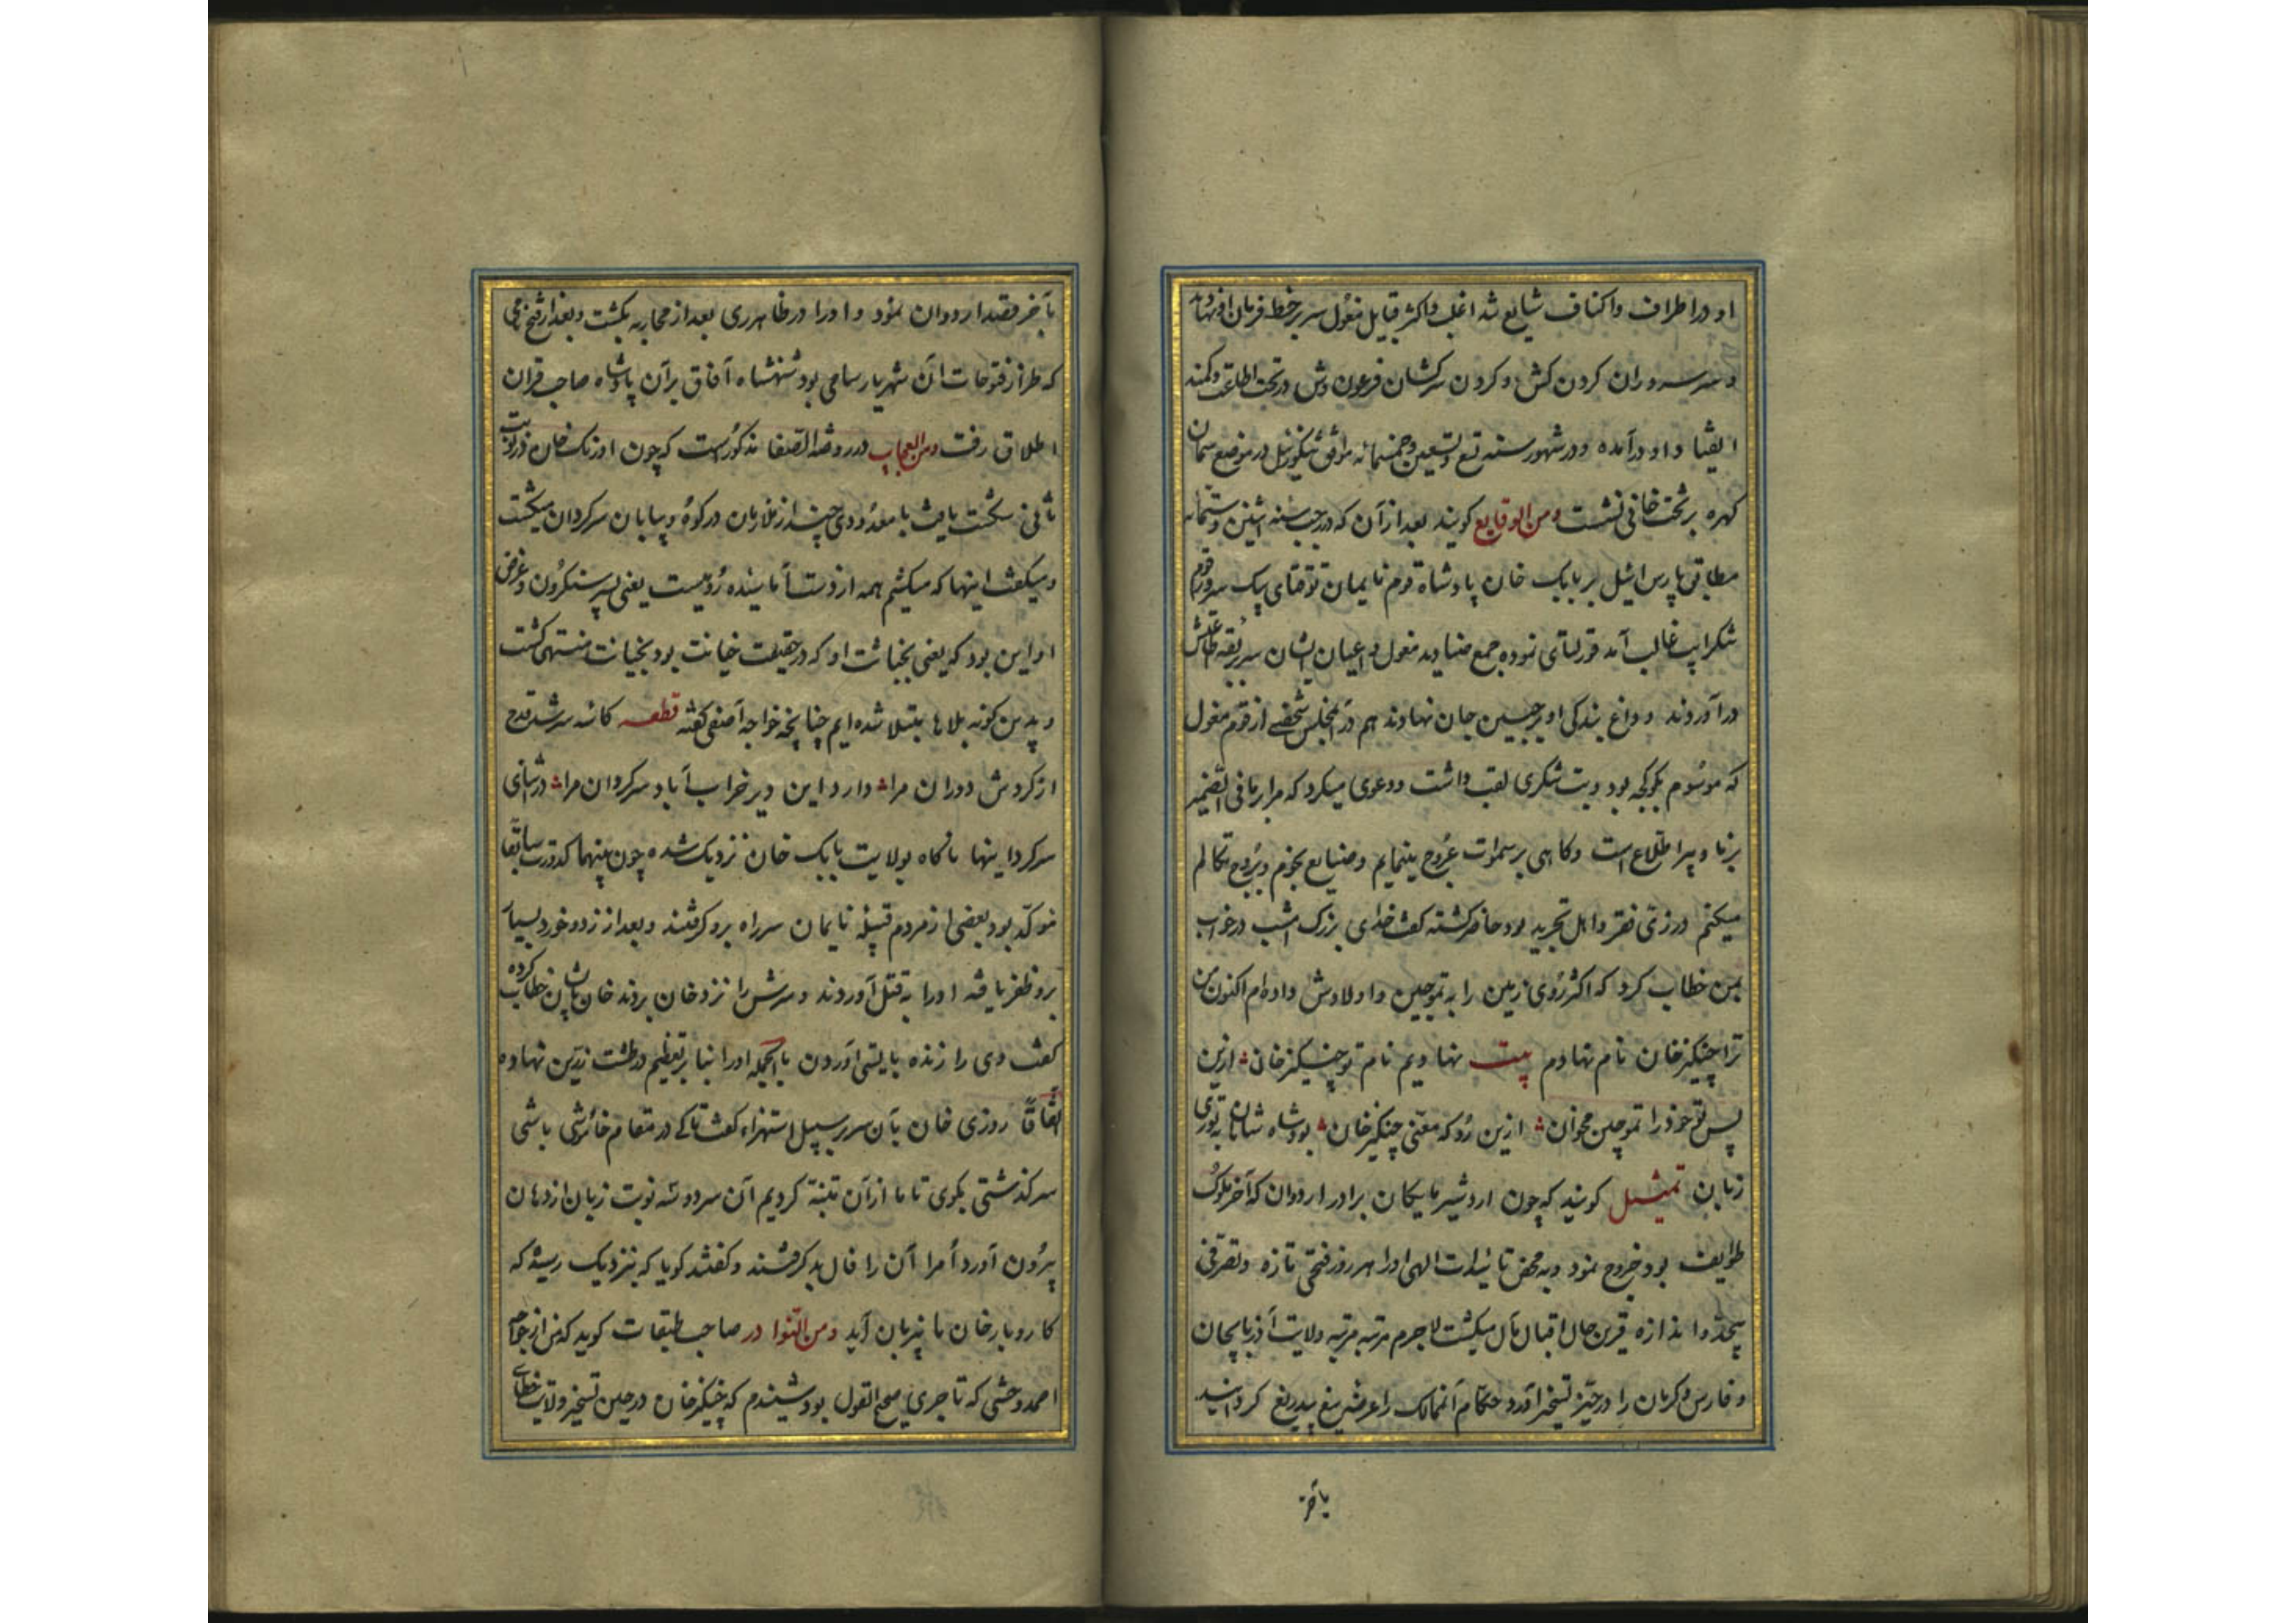 او در اطراف و اکناف شایع شد اغلب و اکثر قبایل مغول سر بر خط فرمان او نهادند
و سر سروران کردن کش و کردن سرکشان فرعون وش در تحت اطاعت و کمند
انقیاد او درآمده و در شهور سنه تسع و تسعین و خمسمائه موافق تنکوزئیل در موضع سمان
کهره بر تخت خانی نشست ومن الوقایع کویند بعد از آن که در رجب سنه اثنین و ستمائه
مطابق پارس ائیل بر بابک خان پادشاه قوم نایمان توقتای بیک سرور قوم
غالب آمد قورلتای نموده جمع صنادید مغول و اعیان ایشان سر بربقه طاعتش
درآوردند و داغ بندکی او بر جبین جان نهادند هم در آن مجلس شخصی از قوم مغول
که موسوم بکوکجه بود و بت تنکری لقب داشت و دعوی میکرد که مرا بر ما فی الضمیر
برنا و پیر اطلاع است و کاهی بر سموات عروج مینمایم و ضیایع بجوم و بروج تکالم
میکنم در زی فقر و اهل تجرید بود حاضر کشته کفت خدای بزرک امشب در خواب
بمن خطاب کرد که اکثر روی زمین را به تموجین و اولادش داده ام اکنون من
ترا چنکیزخان نام نهادم بیت نهادیم نام تو چنیکزخان ازین
پس تو خود را تموچین مخوان ازین رو که معنی چنکیزخان بود شاه شاهان به توری
زبان تمثیل کویند که چون اردشیر بابکان برادر اردوان که آخر ملوک
طوایف بود خروج نمود و به محض تائیدات الهی او را هر روز فتحی تازه و تصرفی
بیحد و اندازه قرین حال اقبال مآل میکشت لاجرم مرتبه مرتبه ولایت آذربایجان
و فارس و کرمان را در حیز تسخیر آورد حکام آنممالک را عرضه تیغ بیدریغ کردانید
بآخر
بآخر قصد اردوان نمود و او را در ظاهر ری بعد از محاربه بکشت و بعد از فتح ری
که طراز فتوحات آن شهریار سامی بود شهنشاه آفاق بر آن پادشاه صاحب قران
اطلاق رفت ومن العجایب در روضه الصفا مذکورست که چون اونک خان در نوبت
ثانی شکست یافت با معدودی چند از ملازمان در کوه و بیابان سرکردان میکشت
و میکفت اینها که میکشم همه از دست نماینده رویست یعنی پسر سنکون و غرض
او این بود که یعنی بخباثت او که در حقیقت خیانت بود بخیانت منتهی کشت
و بدین کونه بلاها مبتلا شده ایم چنانچه خواجه آصفی کفته قطعه کاسه سر شد قدح
از کردش دوران مرا دارد این دیر خراب آباد سرکردان مرا در اثنای
سرکردانیها ناکاه بولایت بابک خان نزدیک شده چون بینهما کدورت سابقا
موکد بود بعضی از مردم قبیله نایمان سر راه برو کرفتند و بعد از زد و خورد بسیار
برو ظفر یافته او را به قتل آوردند و سرش را نزد خان بردند خان بآن خطاب کرده
کفت وی را زنده بایستی آوردن بالجمله او را بنا بر تعظیم در طشت زرین نهاده
اتفاقا روزی خان بآن سر بر سبیل استهزاء کفت تا کی در مقام خاموشی باشی
سرکذشتی بکوی تا ما از آن تنبه کردیم آن سر دو سه نوبت زبان از دهان
بیرون آورد امرا آن را فال بد کرفتند و کفتند کویا که نزدیک رسیده که
کاروبار خان با نبزبان آید ومن النوادر صاحب طبقات کوید که من از خواجه
احمد وخشی که تاجری صحیح القول بود شنیدم که چنیکزخان در حین تسخیر ولایت خطای